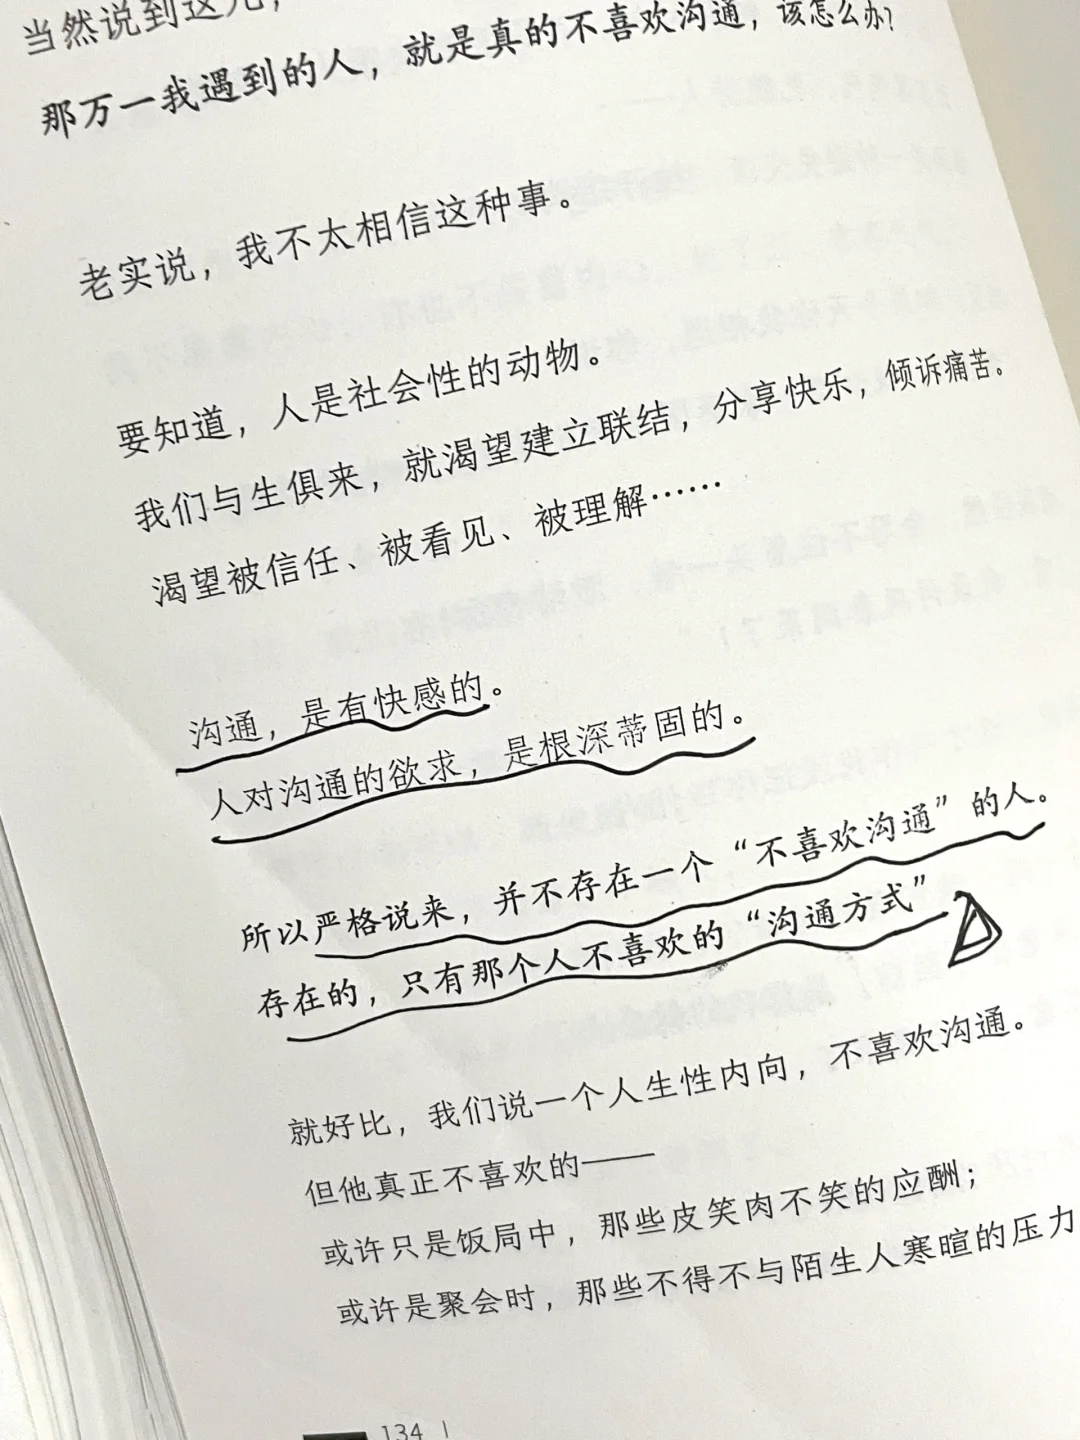 当然说到这儿，
那万一我遇到的人，就是真的不喜欢沟通，该怎么办？
老实说，我不太相信这种事。
要知道，人是社会性的动物。
我们与生俱来，就渴望建立联结，分享快乐，倾诉痛苦。
渴望被信任、被看见、被理解……
沟通，是有快感的。
人对沟通的欲求，是根深蒂固的。
所以严格说来，并不存在一个“不喜欢沟通”的人。
存在的，只有那个人不喜欢的“沟通方式”
就好比，我们说一个人生性内向，不喜欢沟通。
但他真正不喜欢的——
或许只是饭局中，那些皮笑肉不笑的应酬；
或许是聚会时，那些不得不与陌生人寒暄的压力
134